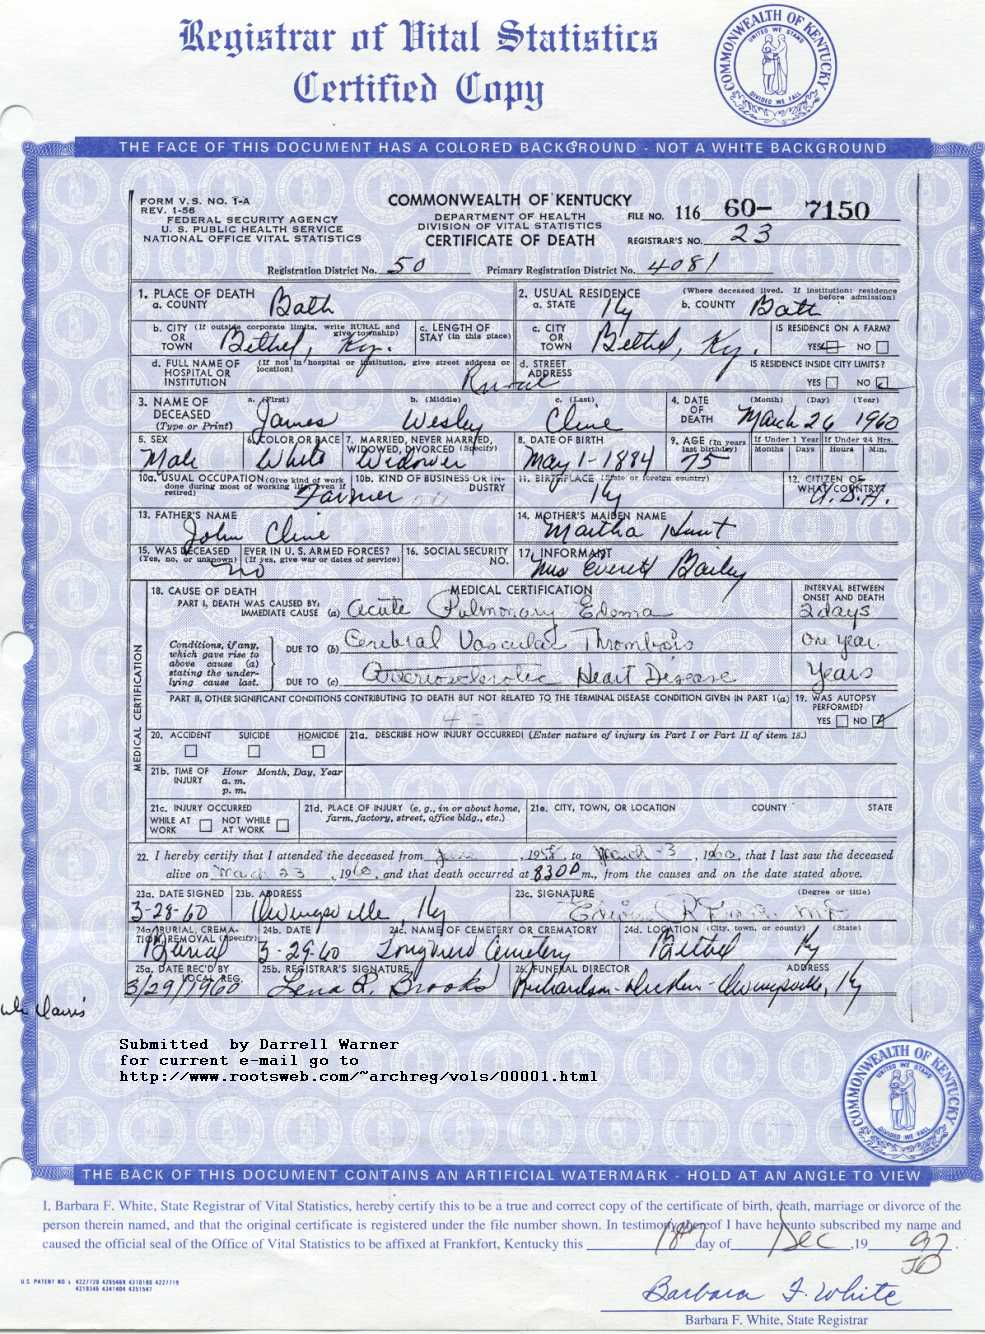 Registrar of Vital Statistics
Certified Copy
COMMONWEALTH OF KENTUCKY
UNITED WE STAND
DIVIDED WE FALL
THE FACE OF THIS DOCUMENT HAS A COLORED BACKGROUND - NOT A WHITE BACKGROUND
FORM V.S. NO. 1-A
REV. 1-56
FEDERAL SECURITY AGENCY
U. S. PUBLIC HEALTH SERVICE
NATIONAL OFFICE VITAL STATISTICS
COMMONWEALTH OF KENTUCKY
DEPARTMENT OF HEALTH
DIVISION OF VITAL STATISTICS
CERTIFICATE OF DEATH
FILE NO. 116 60- 7150
REGISTRAR'S NO. 23
Registration District No. 50 Primary Registration District No. 4081
1. PLACE OF DEATH
a. COUNTY Bath
2. USUAL RESIDENCE (Where deceased lived. If institution: residence before admission)
a. STATE Ky b. COUNTY Bath
b. CITY OR TOWN (If outside corporate limits, write RURAL and give township) Bethel, Ky.
c. LENGTH OF STAY (in this place)
c. CITY OR TOWN Bethel, Ky.
IS RESIDENCE ON A FARM?
YES NO
d. FULL NAME OF HOSPITAL OR INSTITUTION (If not in hospital or institution, give street address or location) Rural
d. STREET ADDRESS
IS RESIDENCE INSIDE CITY LIMITS?
YES NO
3. NAME OF DECEASED (Type or Print)
a. (First) James b. (Middle) Wesley c. (Last) Cline
4. DATE OF DEATH (Month) (Day) (Year) March 26 1960
5. SEX Male
6. COLOR OR RACE White
7. MARRIED, NEVER MARRIED, WIDOWED, DIVORCED (Specify) Widower
8. DATE OF BIRTH May 1-1884
9. AGE (In years last birthday) 75
If Under 1 Year Months Days
If Under 24 Hrs. Hours Min.
10a. USUAL OCCUPATION (Give kind of work done during most of working life, even if retired) Farmer
10b. KIND OF BUSINESS OR INDUSTRY
11. BIRTHPLACE (State or foreign country) Ky
12. CITIZEN OF WHAT COUNTRY? U.S.A.
13. FATHER'S NAME John Cline
14. MOTHER'S MAIDEN NAME Martha Hunt
15. WAS DECEASED EVER IN U. S. ARMED FORCES?
(Yes, no, or unknown) (If yes, give war or dates of service) no
16. SOCIAL SECURITY NO.
17. INFORMANT Mrs Everett Bailey
MEDICAL CERTIFICATION
18. CAUSE OF DEATH
MEDICAL CERTIFICATION
INTERVAL BETWEEN ONSET AND DEATH
PART I, DEATH WAS CAUSED BY:
IMMEDIATE CAUSE (a) Acute Pulmonary Edema 2 days
Conditions, if any, which gave rise to above cause (a) stating the underlying cause last.
DUE TO (b) Cerebral Vascular Thrombosis One year
DUE TO (c) Arteriosclerotic Heart Disease Years
PART II, OTHER SIGNIFICANT CONDITIONS CONTRIBUTING TO DEATH BUT NOT RELATED TO THE TERMINAL DISEASE CONDITION GIVEN IN PART 1(a)
19. WAS AUTOPSY PERFORMED?
YES NO
20. ACCIDENT SUICIDE HOMICIDE
21a. DESCRIBE HOW INJURY OCCURRED! (Enter nature of injury in Part I or Part II of item 18.)
21b. TIME OF INJURY Hour Month, Day, Year
a. m.
p. m.
21c. INJURY OCCURRED
WHILE AT WORK NOT WHILE AT WORK
21d. PLACE OF INJURY (e. g., in or about home, farm, factory, street, office bldg., etc.)
21e. CITY, TOWN, OR LOCATION COUNTY STATE
22. I hereby certify that I attended the deceased from June, 1958, to March 23, 1960, that I last saw the deceased
alive on March 23, 1960, and that death occurred at 830 P m., from the causes and on the date stated above.
23a. DATE SIGNED 3-28-60
23b. ADDRESS Owingsville, Ky
23c. SIGNATURE (Degree or title)
24a. BURIAL, CREMATION, REMOVAL (Specify) Burial
24b. DATE 3-29-60
24c. NAME OF CEMETERY OR CREMATORY Longview Cemetery
24d. LOCATION (City, town, or county) (State) Bethel Ky
25a. DATE REC'D BY LOCAL REG. 3/29/1960
25b. REGISTRAR'S SIGNATURE Lena R. Brooks
26. FUNERAL DIRECTOR ADDRESS Richardson- Owingsville, Ky
Submitted by Darrell Warner
for current e-mail go to
http://www.rootsweb.com/~archreg/vols/00001.html
COMMONWEALTH OF KENTUCKY
UNITED WE STAND
DIVIDED WE FALL
THE BACK OF THIS DOCUMENT CONTAINS AN ARTIFICIAL WATERMARK - HOLD AT AN ANGLE TO VIEW
I, Barbara F. White, State Registrar of Vital Statistics, hereby certify this to be a true and correct copy of the certificate of birth, death, marriage or divorce of the
person therein named, and that the original certificate is registered under the file number shown. In testimony thereof I have hereunto subscribed my name and
caused the official seal of the Office of Vital Statistics to be affixed at Frankfort, Kentucky this 18th day of Dec, 19 97.
U.S. PATENT NO.s 4227720 4265469 4310180 4227719
4210346 4341404 4251547
Barbara F. White
Barbara F. White, State Registrar